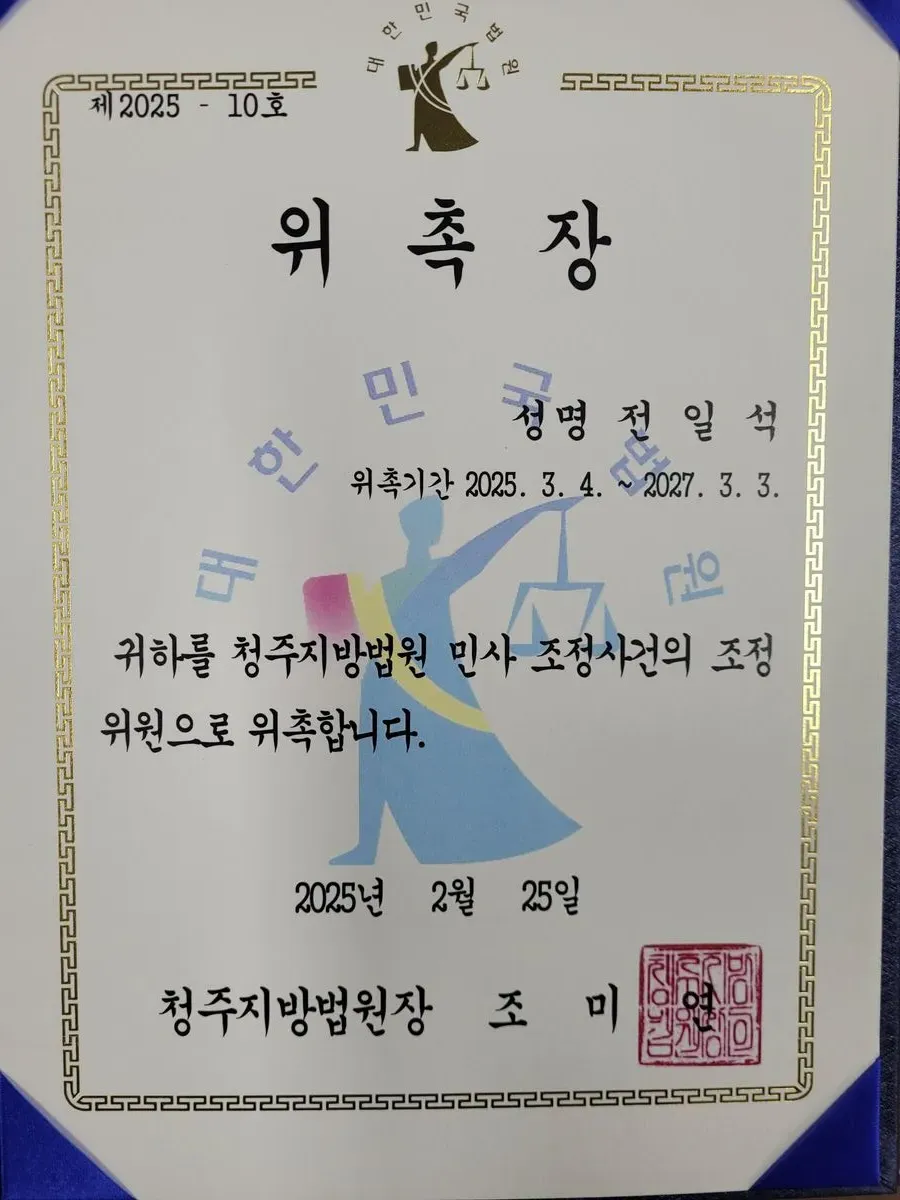 대한민국법원
제2025 - 10호
위 촉 장
대한민국법원
성명 전 일 석
위촉기간 2025. 3. 4. ~ 2027. 3. 3.
귀하를 청주지방법원 민사 조정사건의 조정
위원으로 위촉합니다.
2025년 2월 25일
청주지방법원장 조 미 연
청주지방
법원장의